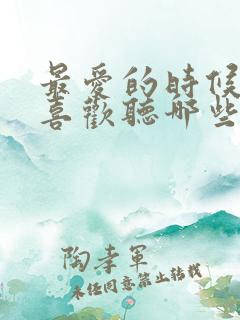 最愛的時候
喜歡聽哪些
陶李軍
未經同意禁止轉載